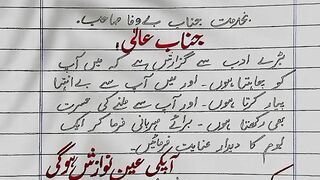 بخدمت جناب بے وفا صاحب۔
جناب عالی!
بڑے ادب سے گزارش ہے کہ میں آپ
کو چاہتا ہوں۔ اور میں آپ سے بے انتہا
پیار کرتا ہوں۔ اور آپ سے ملنے کی حسرت
بھی رکھتا ہوں۔ برائے مہربانی فرما کر ایک
یوم کا دیدار عنایت فرمائیں۔
آپکی عین نوازش ہوگی